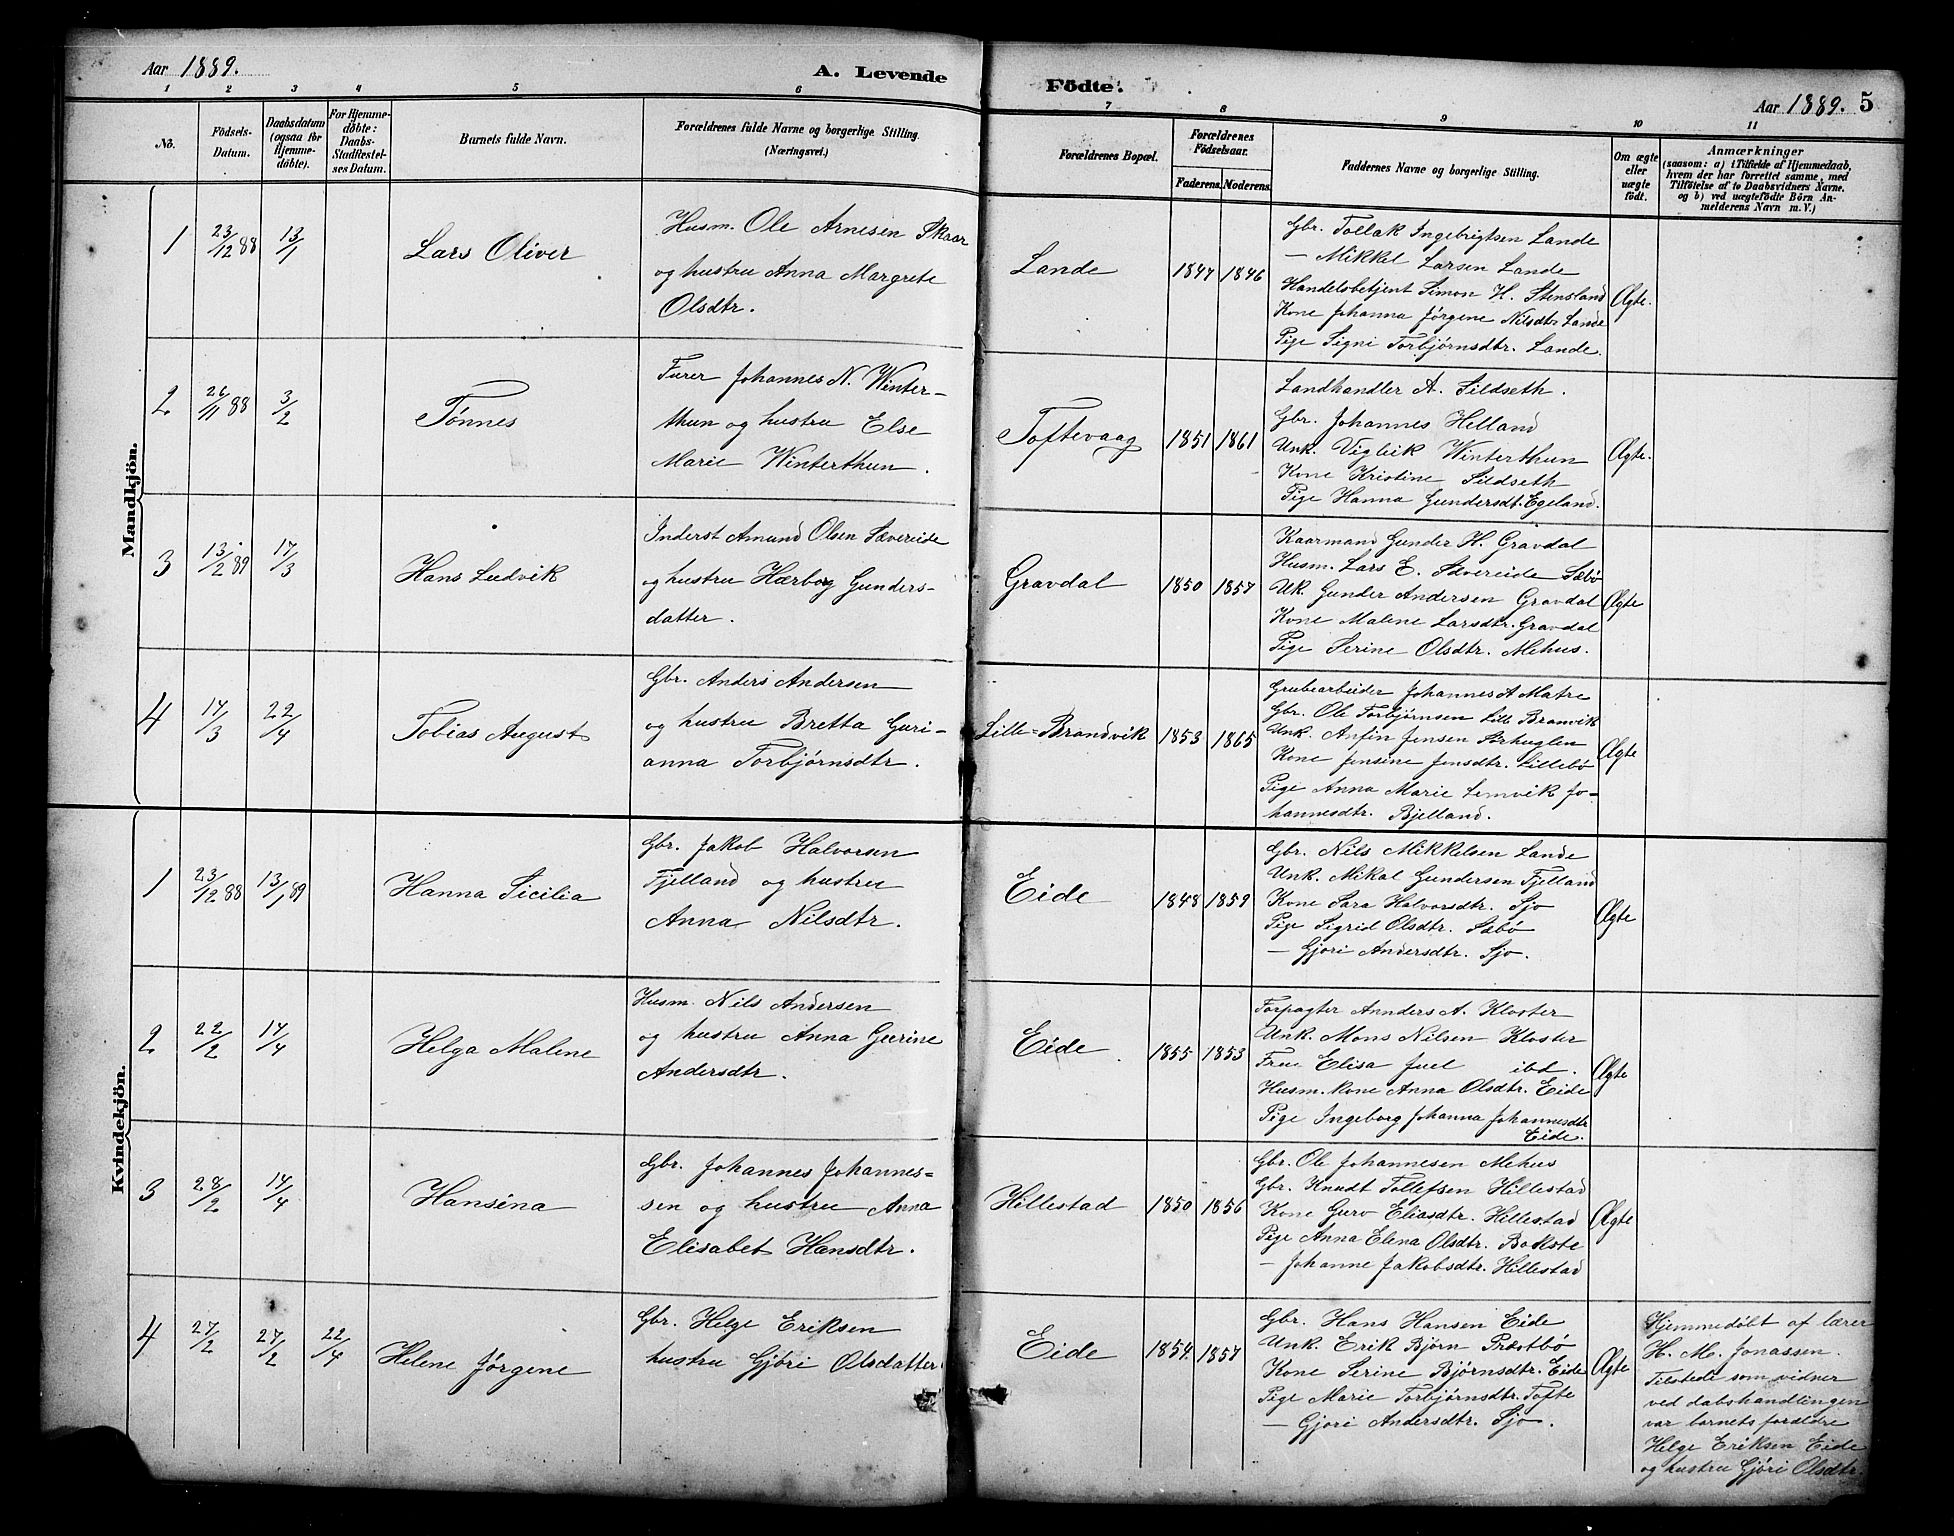 Aar 1889.
A. Levende
Födte.
Aar 1889. 5
1 2 3 4 5 6 7 8 9 10 11
No.
Födsels-Datum.
Daabsdatum (ogsaa for Hjemmedöbte).
For Hjemmedöbte: Daabs-Stadfestelses Datum.
Barnets fulde Navn.
Forældrenes fulde Navne og borgerlige Stilling. (Næringsvei.)
Forældrenes Bopæl.
Forældrenes Födselsaar.
Faderens. Moderens.
Faddernes Navne og borgerlige Stilling.
Om ægte eller uægte födt.
Anmærkninger
(saasom: a) i Tilfælde af Hjemmedaab,
hvem der har forrettet samme, med
Tilföielse af to Daabsvidners Navne.
og b) ved uægtefödte Börn An-
melderens Navn m. V.)
Mandkjön.
1 23/12 88 13/1
Lars Oliver
Husm. Ole Arnesen Skaar
og hustru Anna Margrete
Olsdtr.
Lande 1847 1846
Gbr. Tollak Ingebrigtsen Lande
— Mikkel Larsen Lande
Handelsbetjent Simon H. Stensland
Kone Johanna Jørgene Nilsdtr Lande
Pige Signi Torbjørnsdtr. Lande.
Ægte.
2 26/11 88 3/2
Tønnes
Furer Johannes N. Winter-
thun og hustru Else
Marie Winterthun.
Toftevaag 1851 1861
Landhandler A. Sildseth.
Gbr. Johannes Helland
Unk. Vigleik Winterthun
Kone Kristine Sildseth
Pige Hanna Gundersdt. Egeland.
Ægte.
3 13/2 89 17/3
Hans Ludvik
Inderst Amund Olsen Sævereide
og hustru Hærborg Gunders-
datter.
Gravdal 1850 1857
Kaarmand Gunder H. Gravdal
Husm. Lars E. Sævereide Sæbø
Uk. Gunder Andersen Gravdal
Kone Malene Larsdtr. Gravdal
Pige Serine Olsdtr. Mehus.
Ægte
4 17/3 22/4
Tobias August
Gbr. Anders Andersen
og hustru Bretta Guri-
anna Torbjørnsdtr.
Lille-Brandvik 1853 1865
Grubearbeider Johannes A Matre
Gbr. Ole Torbjørnsen Lille Branvik
Unk. Anfin Jensen Sørhuglen
Kone Jensine Jensdtr. Lillebø
Pige Anna Marie Lemvik Jo-
hannesdtr. Bjelland.
Ægte
Kvindekjön.
1 23/12 88 13/1 89
Hanna Sicilia
Gbr. Jakob Halvorsen
Fjelland og hustru
Anna Nilsdtr.
Eide 1848 1859
Gbr. Nils Mikkelsen Lande
Unk. Mikal Gundersen Fjelland
Kone Sara Halvorsdtr. Sjo
Pige Sigrid Olsdtr. Sæbø
— Gjøri Andersdtr. Sjo.
Ægte
2 22/2 14/4
Helga Malene
Husm. Nils Andersen
og hustru Anna Gurine
Andersdtr.
Eide. 1855 1853
Forpagter Annders A. Kloster
Unk. Mons Nilsen Kloster
Frue Elisa Juel ibd.
Husm. kone Anna Olsdtr. Eide
Pige Ingeborg Johanna Johannesdtr
Eide.
Ægte
3 28/2 14/4
Hansina
Gbr. Johannes Johannes-
sen og hustru Anna
Elisabet Hansdtr.
Hillestad 1850 1856
Gbr. Ole Johannesen Mehus
Gbr. Knudt Tollefsen Hillestad
Kone Guro Eliasdtr. Hillestad
Pige Anna Elena Olsdtr. Bokste
— Johanne Jakobsdtr. Hillestad
Ægte
4 27/2 27/2 22/4
Helene Jørgene
Gbr. Helge Eriksen
hustru Gjøri Olsdatter
Eide 1854. 1857
Gbr. Hans Hansen Eide
Unk. Erik Bjørn Præstbø
Kone Serine Bjørnsdtr. Eide
Pige Marie Torbjørnsdtr. Tofte
— Gjøri Andersdtr. Sjo.
Ægte
Hjemmedøbt af lærer
H. M. Jonassen.
Tilstede som vidner
ved dabshandlingen
var barnets forældre
Helge Eriksen Eide
og hustru Gjøri Olsdtr.